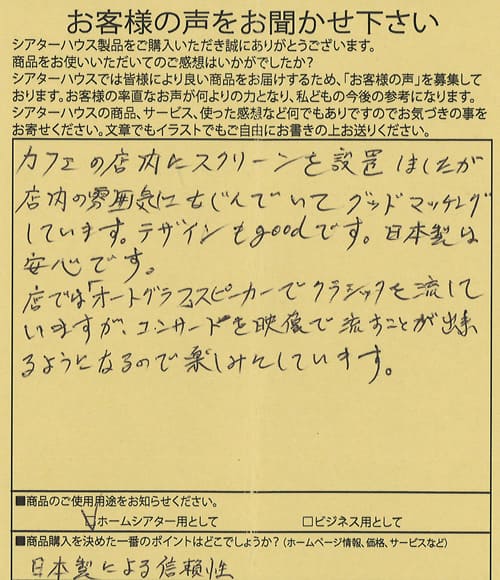 お客様の声をお聞かせ下さい
シアターハウス製品をご購入いただき誠にありがとうございます。
商品をお使いいただいてのご感想はいかがでしたか？
シアターハウスでは皆様により良い商品をお届けするため、「お客様の声」を募集して
おります。お客様の率直なお声が何よりの力となり、私どもの今後の参考になります。
シアターハウスの商品、サービス、使った感想など何でもありですのでお気づきの事を
お寄せください。文章でもイラストでもご自由にお書きの上お送りください。
カフェの店内にスクリーンを設置しましたが
店内の雰囲気にもじんでいてグッドマッチング
しています。デザインもgoodです。日本製は
安心です。
店では「オートグラフスピーカーでクラシックを流して
いますが、コンサートを映像で流すことが出来
るようになるので楽しみにしています。
■商品のご使用用途をお知らせください。
☑ホームシアター用として □ビジネス用として
■商品購入を決めた一番のポイントはどこでしょうか？(ホームページ情報、価格、サービスなど)
日本製による信頼性